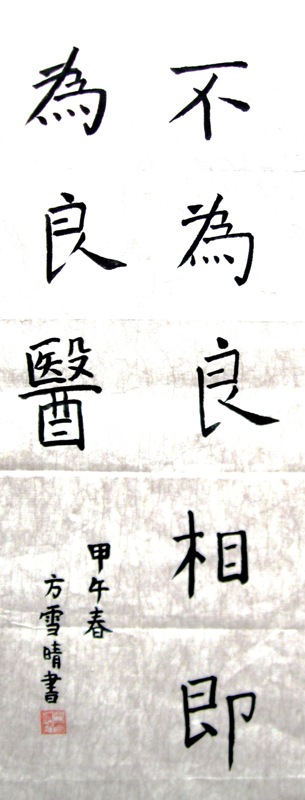 不為良相即
為良醫
甲午春
方雪晴書